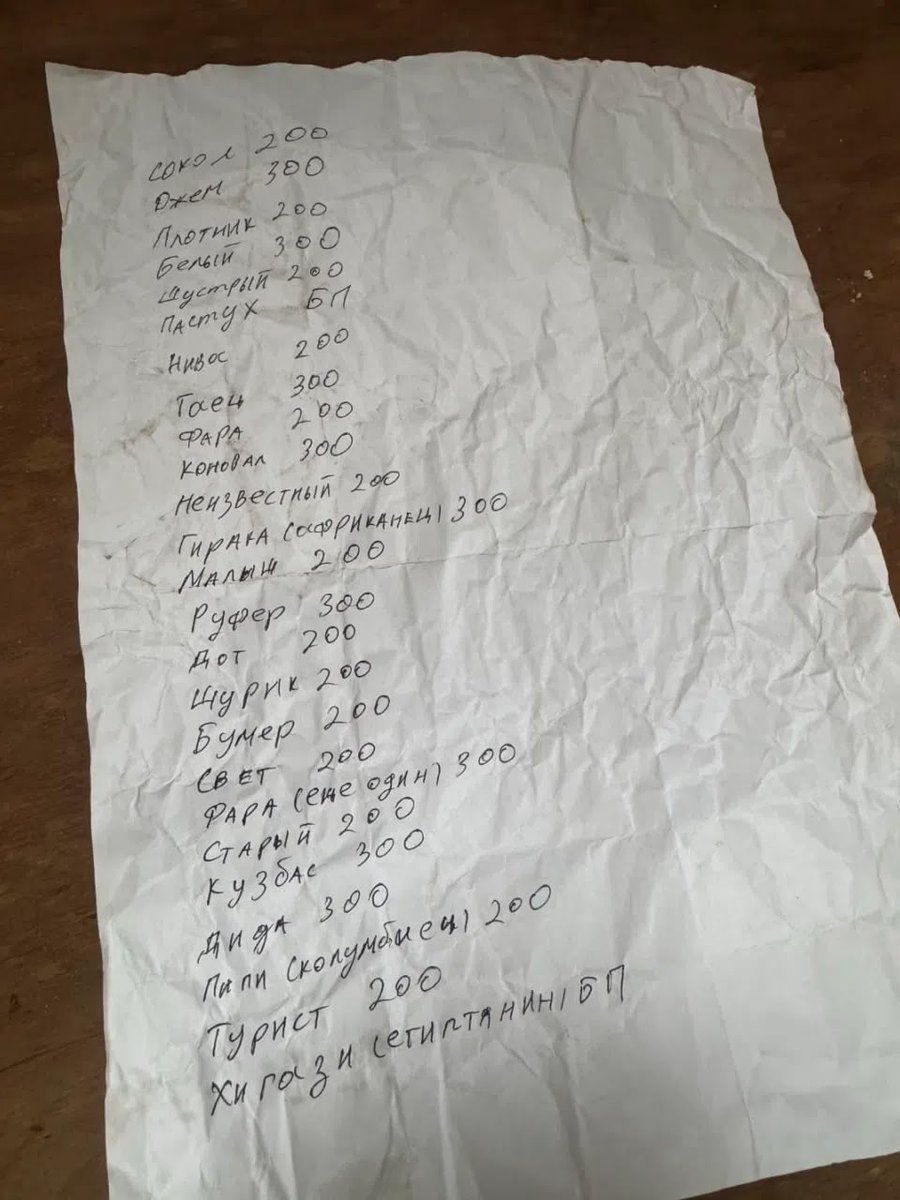 Сокол 200
Джем 300
Плотник 200
Белый 300
Шустрый 200
Пастух БП
Нивос 200
Гаец 300
ФАРА 200
Коновал 300
Неизвестный 200
Гирака (африканец) 300
Малыш 200
Руфер 300
Дот 200
Шурик 200
Бумер 200
Свет 200
ФАРА (еще один) 300
Старый 200
Кузбас 300
Дида 300
Пипи (колумбиец) 200
Турист 200
Хигази (египтянин) БП